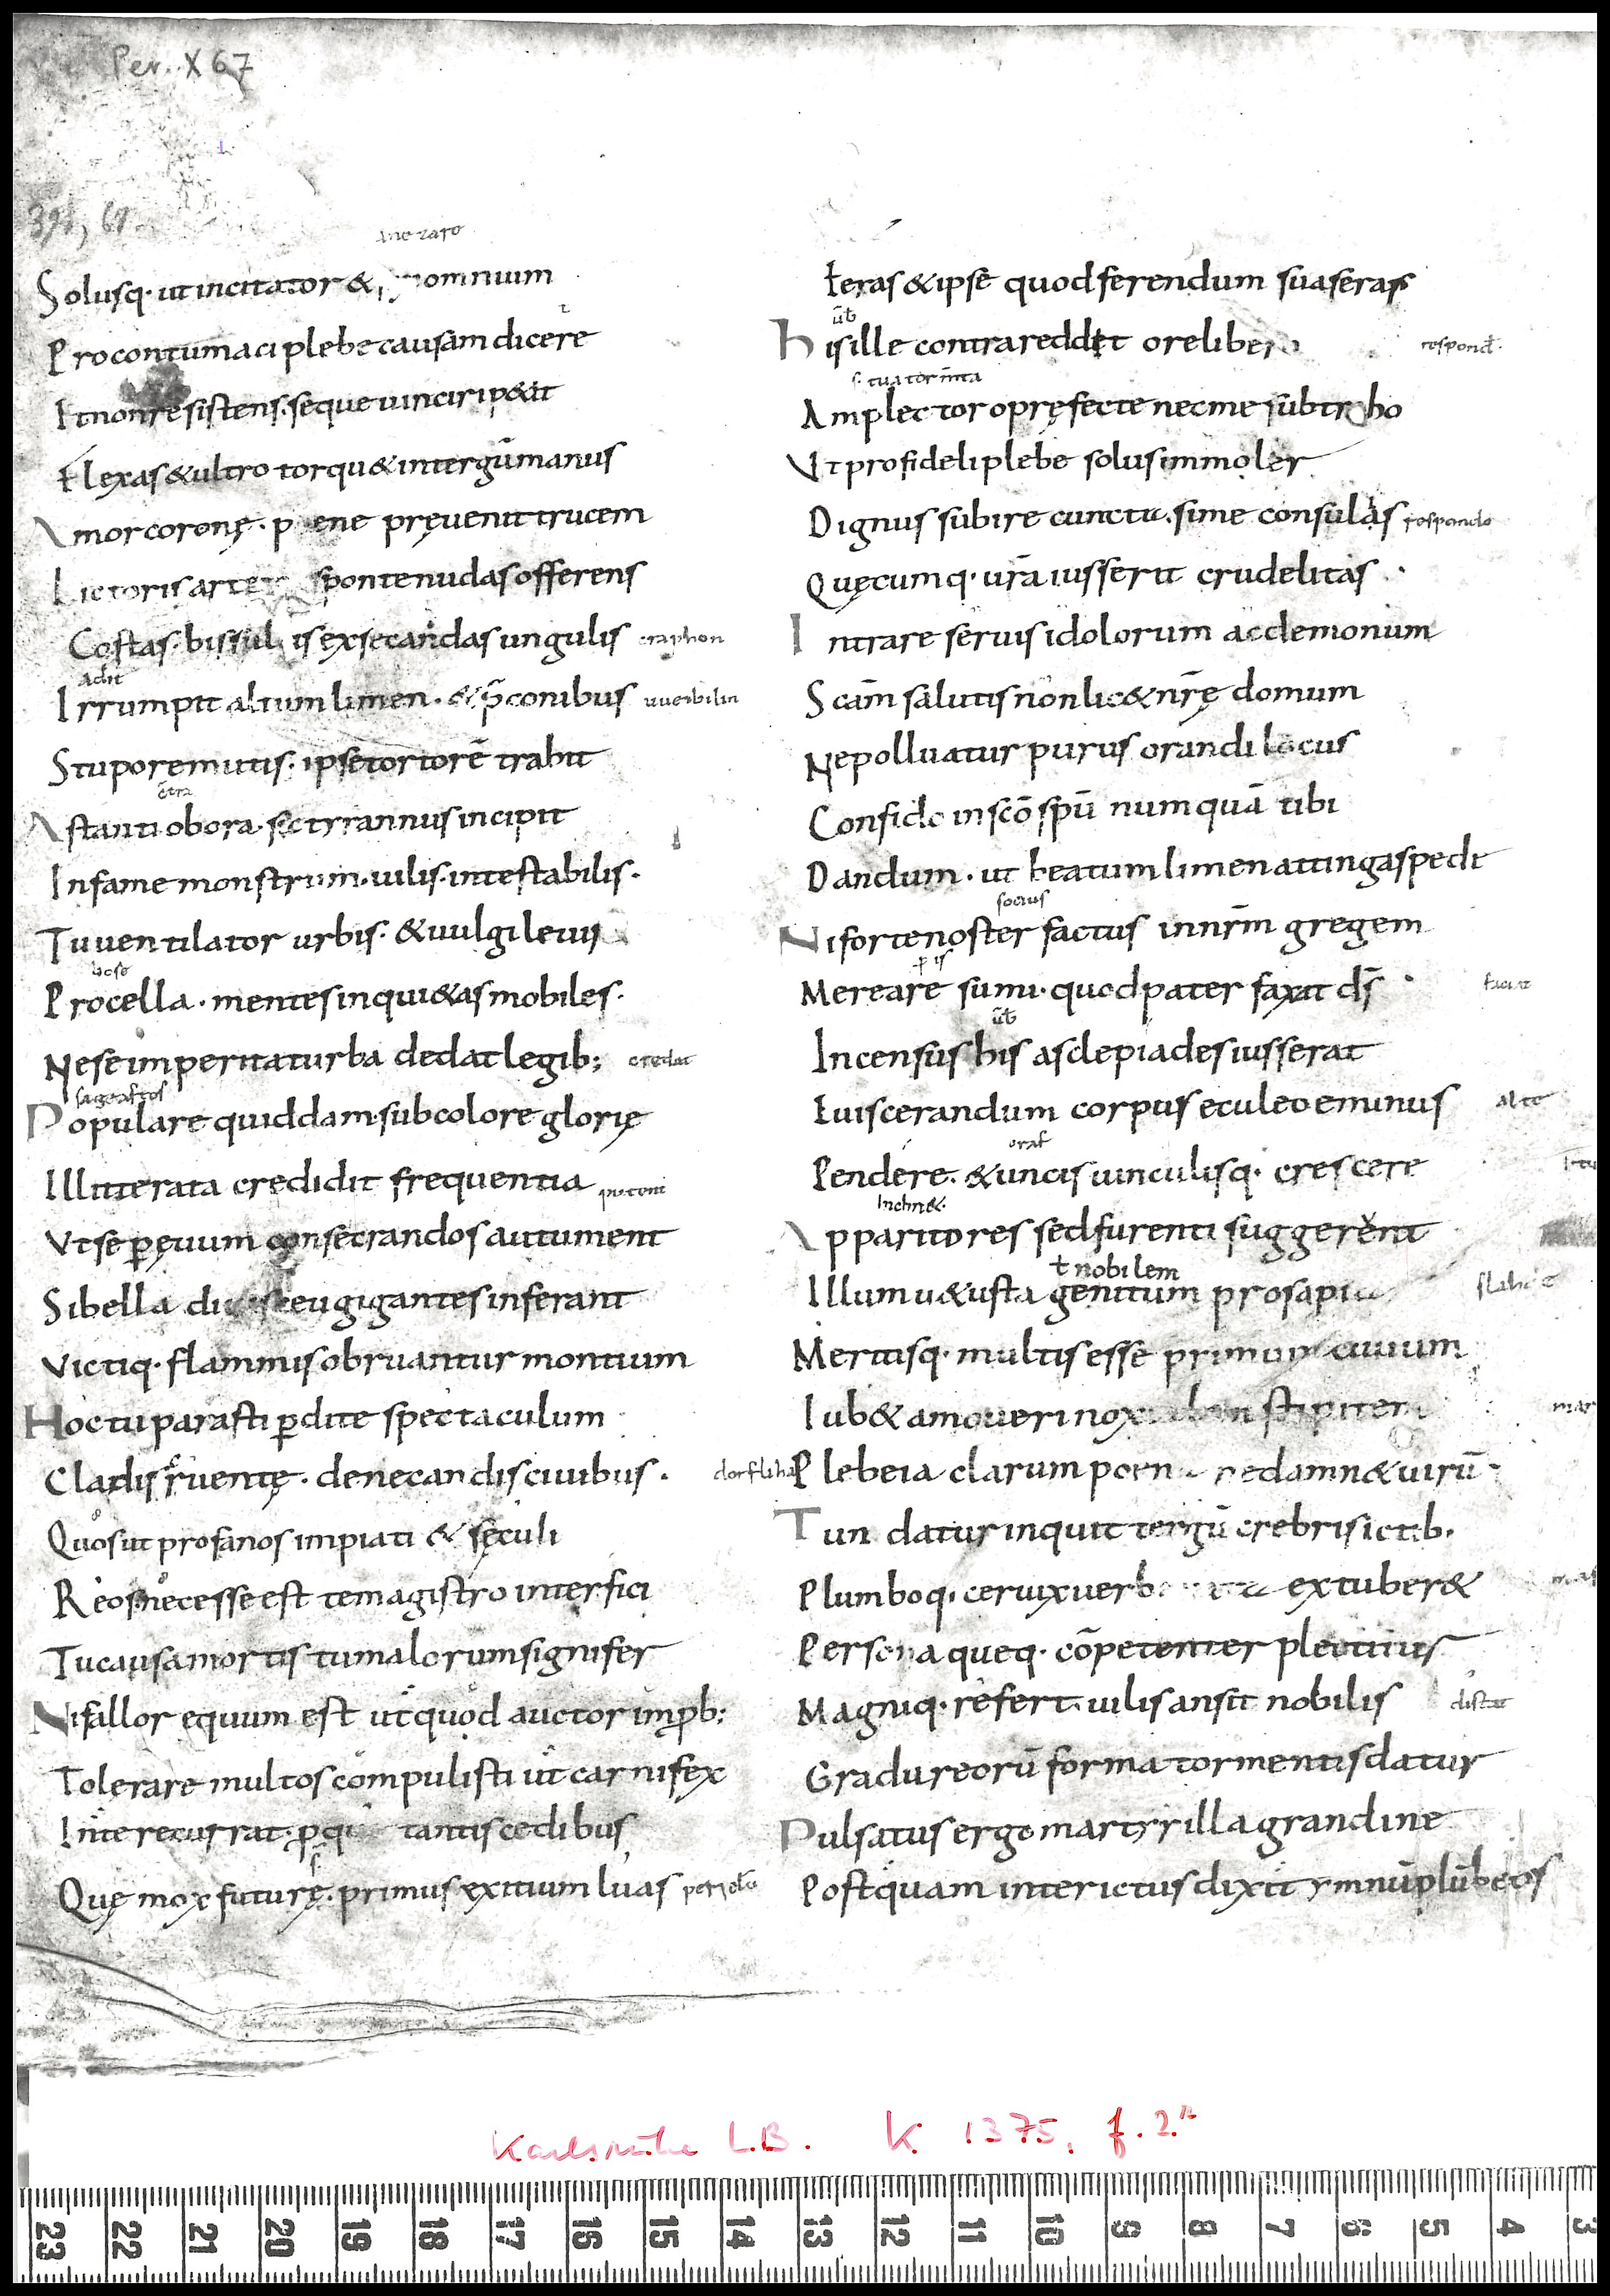 Per. X 67
Solusq· ut incitator & omnium
Pro contumaci plebe causam dicere
It non resistens· seque uinciri p&it
Flexas & ultro torqu& intergū manus
Amor coronę· p ene pręuenit trucem
Lictoris artem sponte nudas offerens
Costas· bissulcis exsecandas ungulis
adit
Irrumpit altum limen· & p̄conibus
Stupore mutis· ipse tortorē trahit
Astanti ob ora· sic tyrannus incipit
Infame monstrum· uilis· intestabilis·
Tu uentilator urbis· & uulgi leuis
Procella· mentes inqui&as mobiles·
Ne se imperita turba dedat legib;
Populare quiddam· sub colore glorię
Illitterata credidit frequentia
Vt se p̲ęuum consecrandos autument
Si bella diuis ceu gigantes inferant
Victiq· flammis obruantur montium
Hoc tu parasti p̲dite spectaculum
Cladis cruentę· de necandis ciuibus·
Quos ut profanos impiati & sęculi
Reos necesse est te magistro interfici
Tu causa mortis tu malorum signifer
Ni fallor equum est ut quod auctor imp̲b;
Tolerare multos compulisti ut carnifex
In te recurrat· p̲qi tantis cedibus
Quę mox futurę· primus exitium luas
feras & ipse quod ferendum suaseras
His ille contra reddet ore libero
respond̄·
Amplector o pręfecte nec me subtraho
Vt pro fideli plebe solus immoler
Dignus subire cuncta· si me consulas
respondo
Quęcumq· ur̄a iusserit crudelitas·
Intrare seruis idolorum ac demonum
Scām salutis non lic& nr̄ę domum
Ne polluatur purus orandi locus
Confido in scō spū numquā tibi
Dandum· ut beatum limen attingas pede
socius
Ni forte noster factus in nr̄m gregem
Mereare sumi· quod pater faxat d̄s
Incensus his asclepiades iusserat
Euiscerandum corpus eculeo eminus
alte
Pendere· & uncis uinculisq· crescere
Apparitores sed furenti suggerent
ł nobilem
Illum u&usta genitum prosapia
Meritisq· multis esse primum ciuium
Iub& amoueri noxialem stipitem
Plebeia clarum poena ne damn& uirū·
Tundatur inquit tergū crebris ictib·
Plumboq· ceruix uerberata extuber&
Persona queq· cōpetenter plectitur
Magniq· refert· uilis an sit nobilis
distat
Gradu reorū forma tormentis datur
Pulsatus ergo martyr illa grandine
Postquam inter ictus dixit ymnū plūbeos
Karlsruhe L.B. K 1375, f. 2.ʳ
23 22 21 20 19 18 17 16 15 14 13 12 11 10 9 8 7 6 5 4 3